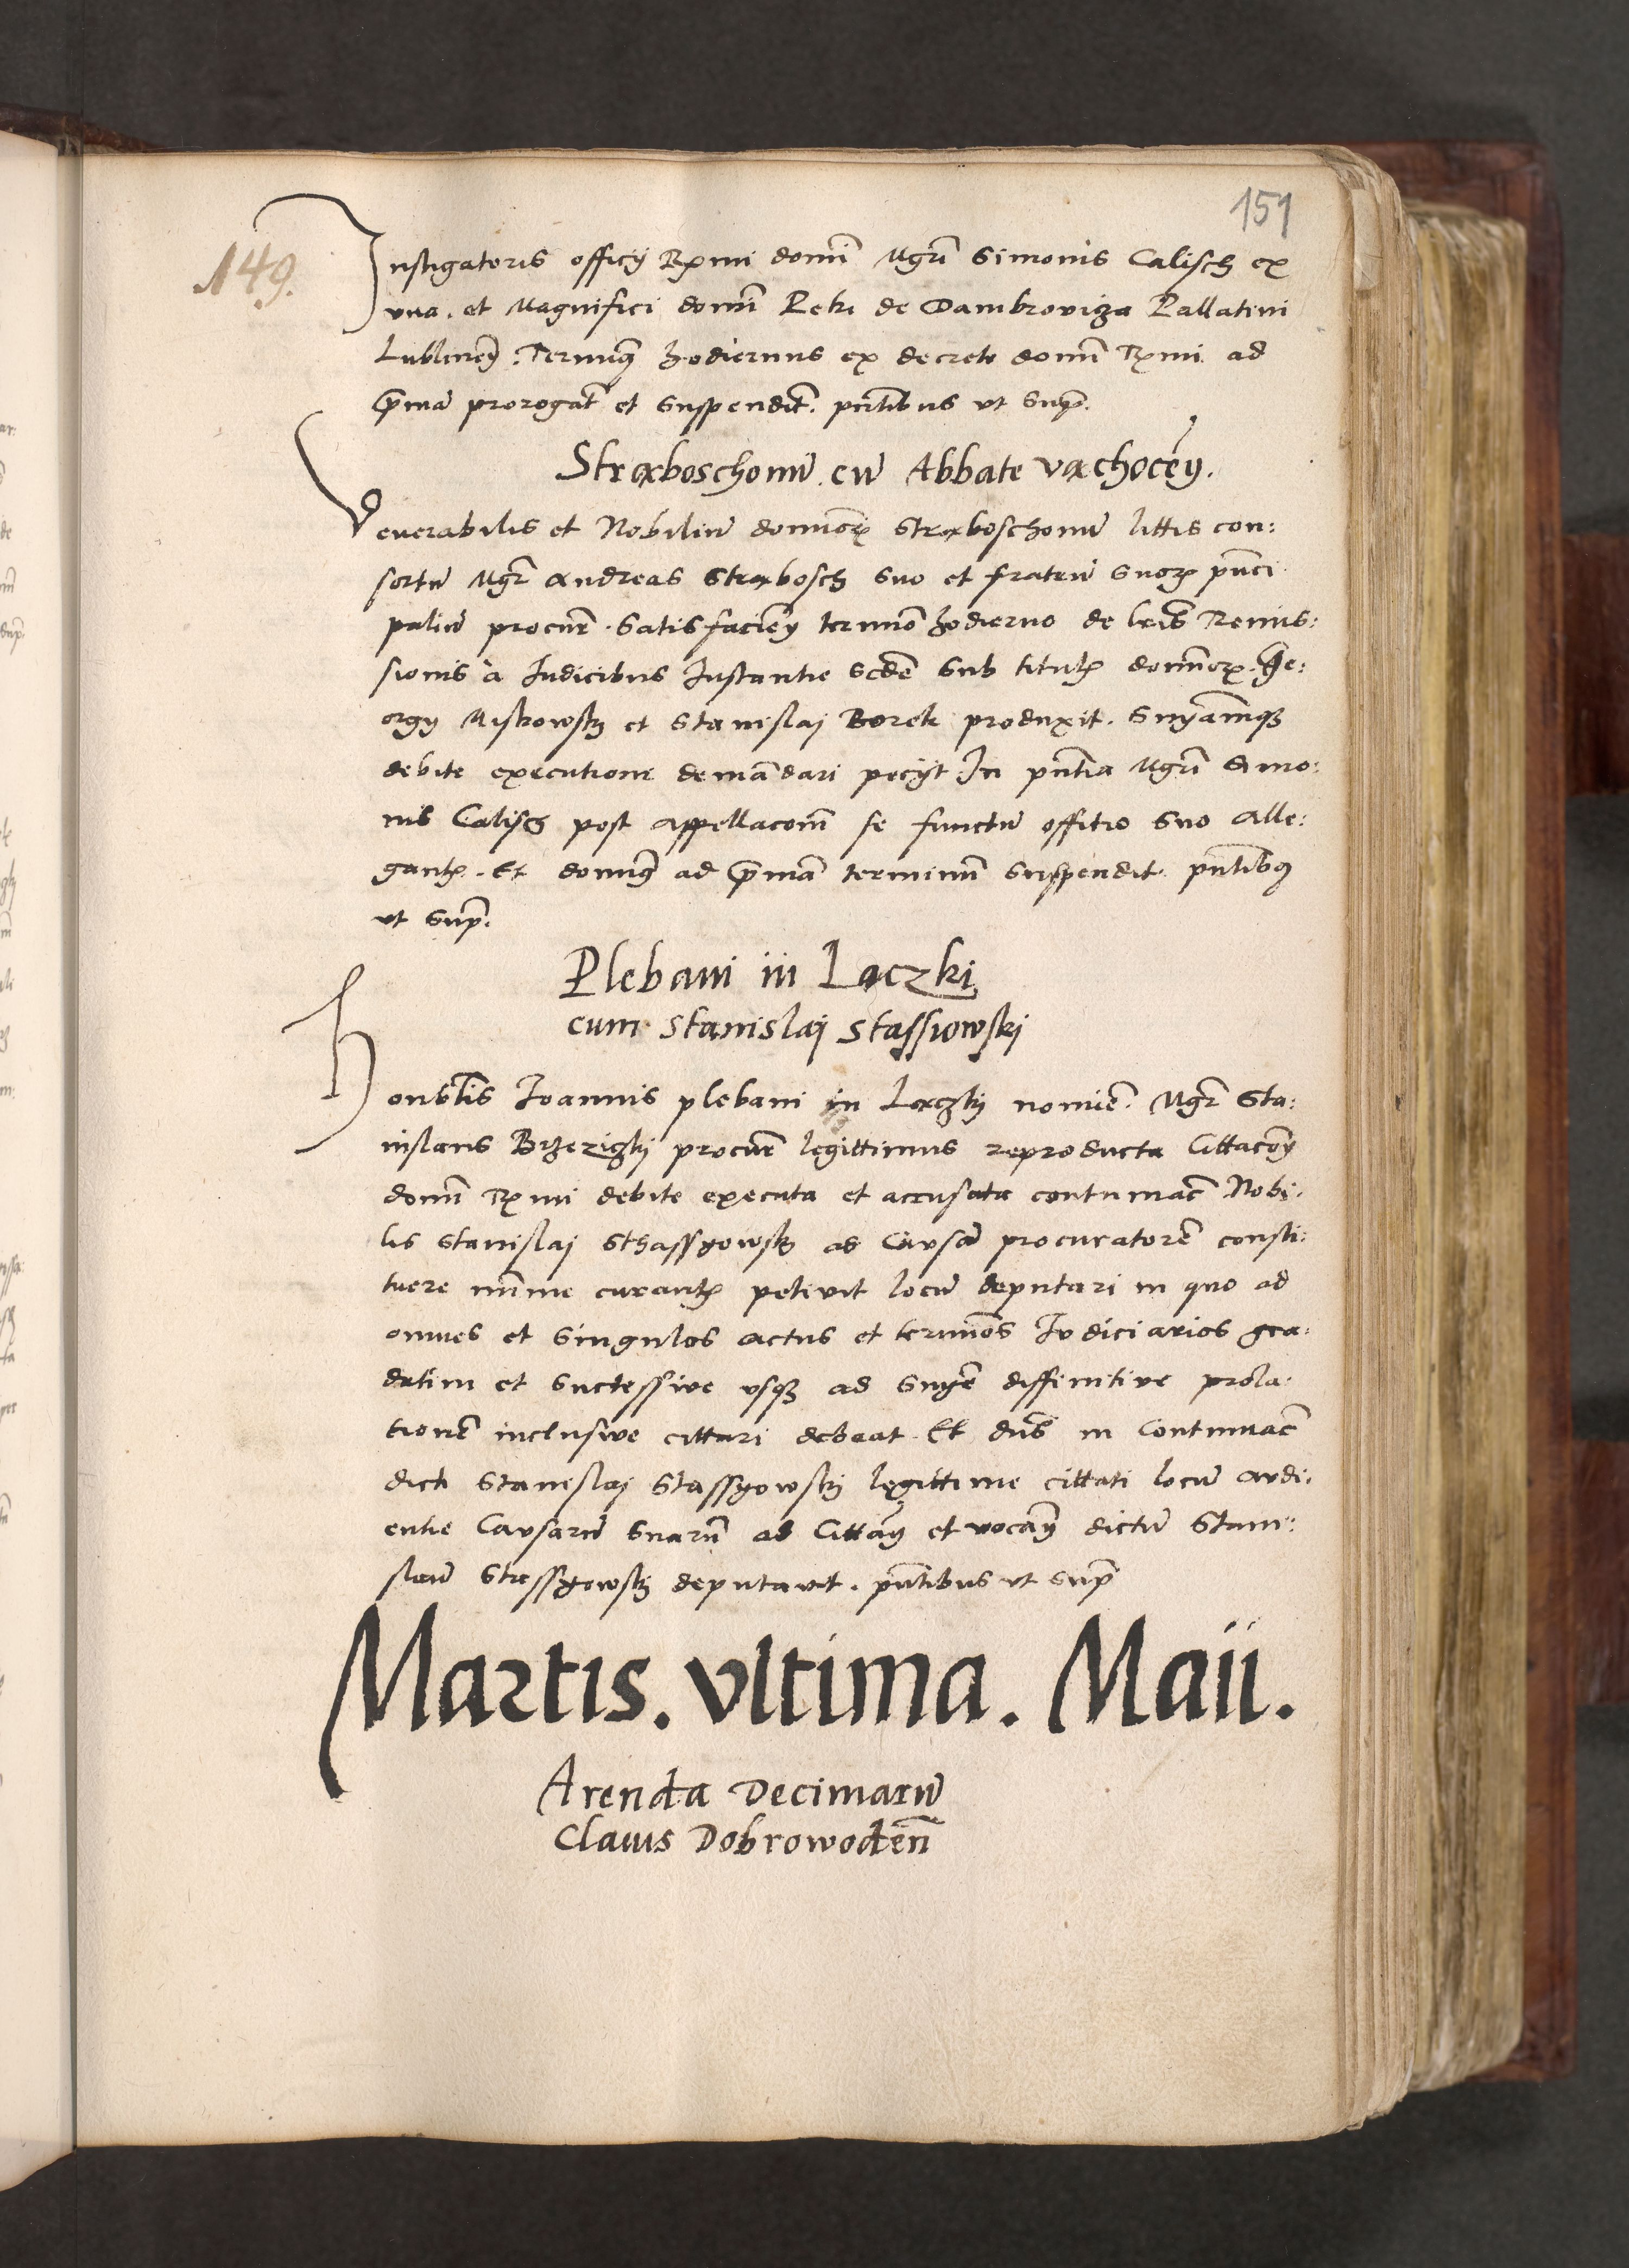 151
149.
Instigatoris officij Rxmi domi Mgri Simonis Calisch ex
vna. et Magnifici domi Petri de Dambroviza Pallatini
Lublinen. Terminus hodiernus ex decreto domi Rxmi ad
primam prorogat et suspendit. pntibus vt supra.
Straboschonum cum Abbate vachocen.
Venerabilis et Nobilium dominorum Straboschonum littis con:
sortum Mgr Andreas Strabosch suo et fratrum suorum princi
palium procur. Satisfaciens termino hodierno de literis Remis:
sionis à Iudicibus Instantie scde sub titulo dominorum. Ge:
orgij Miskowskj et Stanislaj Borek produxit. Sniamque
debite executioni demandari peciit In pntia Mgri Simo:
nis Calisch post appellacom se functum offitio suo Alle:
gantis. Et dominus ad primam terminum suspendit. pntibus
vt supra.
Plebani in Laczki
cum Stanislaj Stassiowskj
Honblis Ioannis plebani in Laczkj nomine. Mgr Sta:
nislaus Brzeziczkj procur legittimus reproducta Cittacony
domi Rxmi debite executa et accusata contumac Nobi.
lis Stanislaj Sthassyowskj ad Causam procuratorem consti:
tuere minime curantis petivit locum deputari in quo ad
omnes et singulos actus et terminos Iudiciarios gra:
datim et suctessive vsque ad snye diffinitive prola:
tionem inclusive cittari debeat. Et dns in Contumac
dicti Stanislaj Stassyowskj legittime cittati locum audi.
entie Causarum suarum ad Cittany et vocany dictum Stani:
slaum Stassyowskj deputavit. pntibus vt supra
Martis. vltima. Maii.
Arenda Decimarum
Clavis Dobrowoden